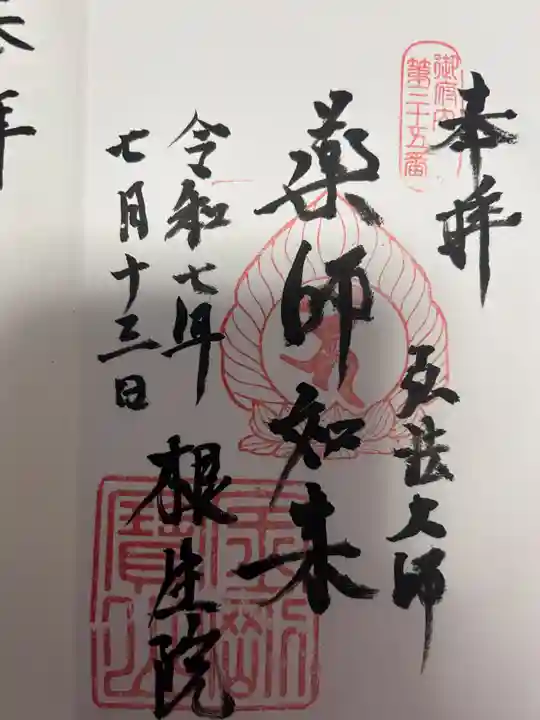 奉拝
御府内
第三十五番
弘法大師
薬師如来
令和七年
七月十三日
根生院
金剛
寶山
拝